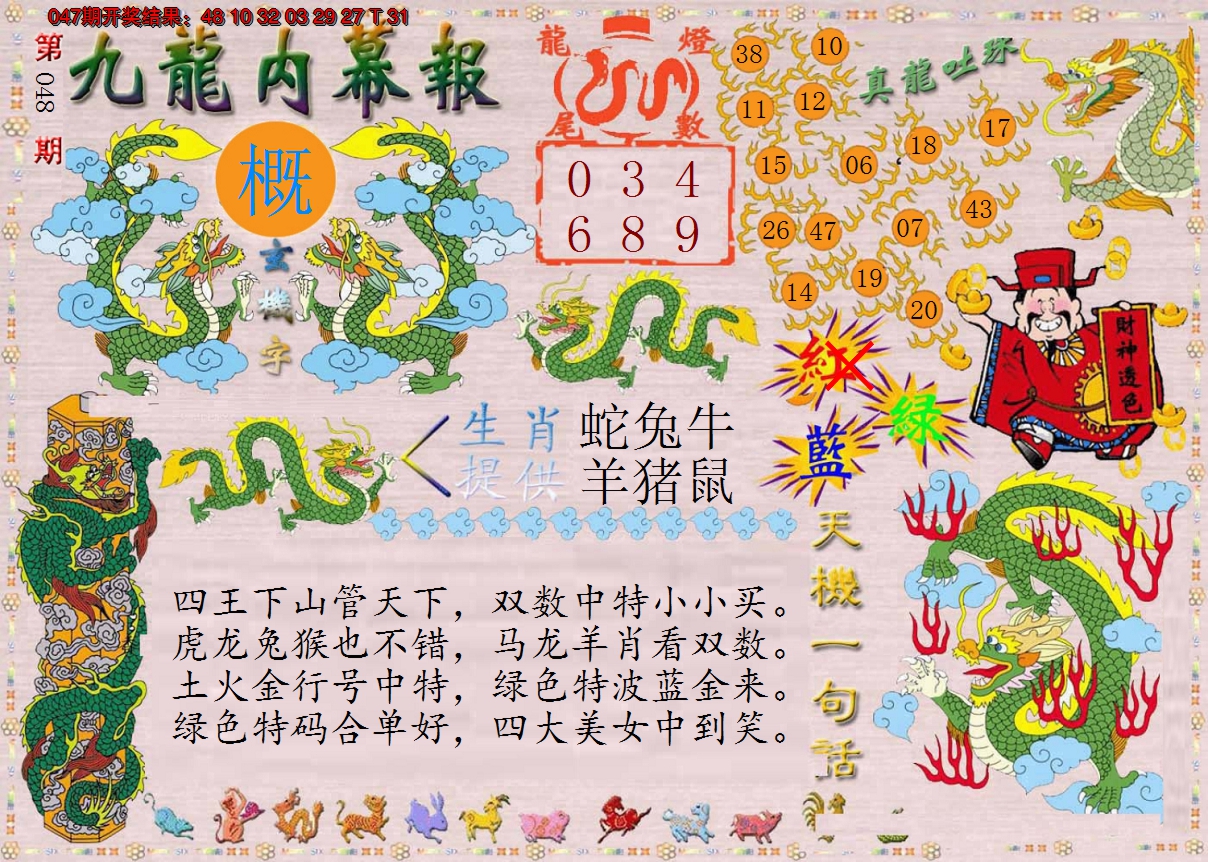 047期开奖结果：48 10 32 03 29 27 T 31
第048期
九龍内幕報
概
玄機字
龍燈
尾數
0 3 4
6 8 9
真龍吐珠
38 10
11 12
15 06 18 17
26 47 07 43
14 19 20
紅
绿
藍
財神透色
生肖提供
蛇兔牛
羊猪鼠
天機一句話
四王下山管天下，双数中特小小买。
虎龙兔猴也不错，马龙羊肖看双数。
土火金行号中特，绿色特波蓝金来。
绿色特码合单好，四大美女中到笑。